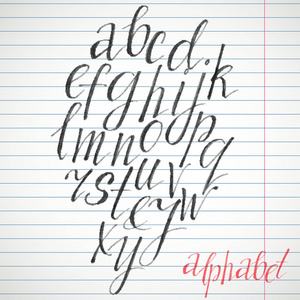 abcd
efghijk
lmnopq
rstuvw
xyz
alphabet